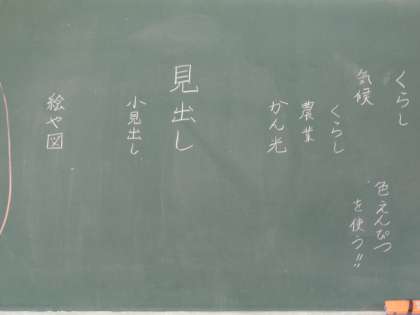 くらし
気候
くらし
農業
かん光
色えんぴつ
を使う!!
見出し
小見出し
絵や図